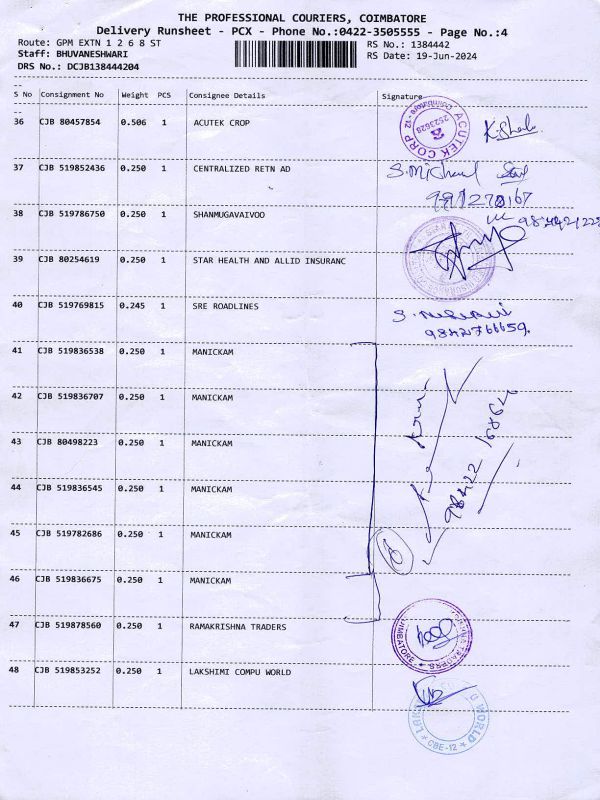 THE PROFESSIONAL COURIERS, COIMBATORE
Delivery Runsheet - PCX - Phone No.:0422-3505555 - Page No.:4
Route: GPM EXTN 1 2 6 8 ST RS No.: 1384442
Staff: BHUVANESHWARI RS Date: 19-Jun-2024
DRS No.: DCJB138444204
S No Consignment No Weight PCS Consignee Details Signature
36 CJB 80457854 0.506 1 ACUTEK CROP
ACUTEK CORP Coimbatore - 12 2523628
37 CJB 519852436 0.250 1 CENTRALIZED RETN AD
S. Michael
38 CJB 519786750 0.250 1 SHANMUGAVAIVOO
39 CJB 80254619 0.250 1 STAR HEALTH AND ALLID INSURANC
40 CJB 519769815 0.245 1 SRE ROADLINES
9842766659.
41 CJB 519836538 0.250 1 MANICKAM
42 CJB 519836707 0.250 1 MANICKAM
43 CJB 80498223 0.250 1 MANICKAM
44 CJB 519836545 0.250 1 MANICKAM
45 CJB 519782686 0.250 1 MANICKAM
46 CJB 519836675 0.250 1 MANICKAM
47 CJB 519878560 0.250 1 RAMAKRISHNA TRADERS
48 CJB 519853252 0.250 1 LAKSHIMI COMPU WORLD
WORLD * CBE-12 *